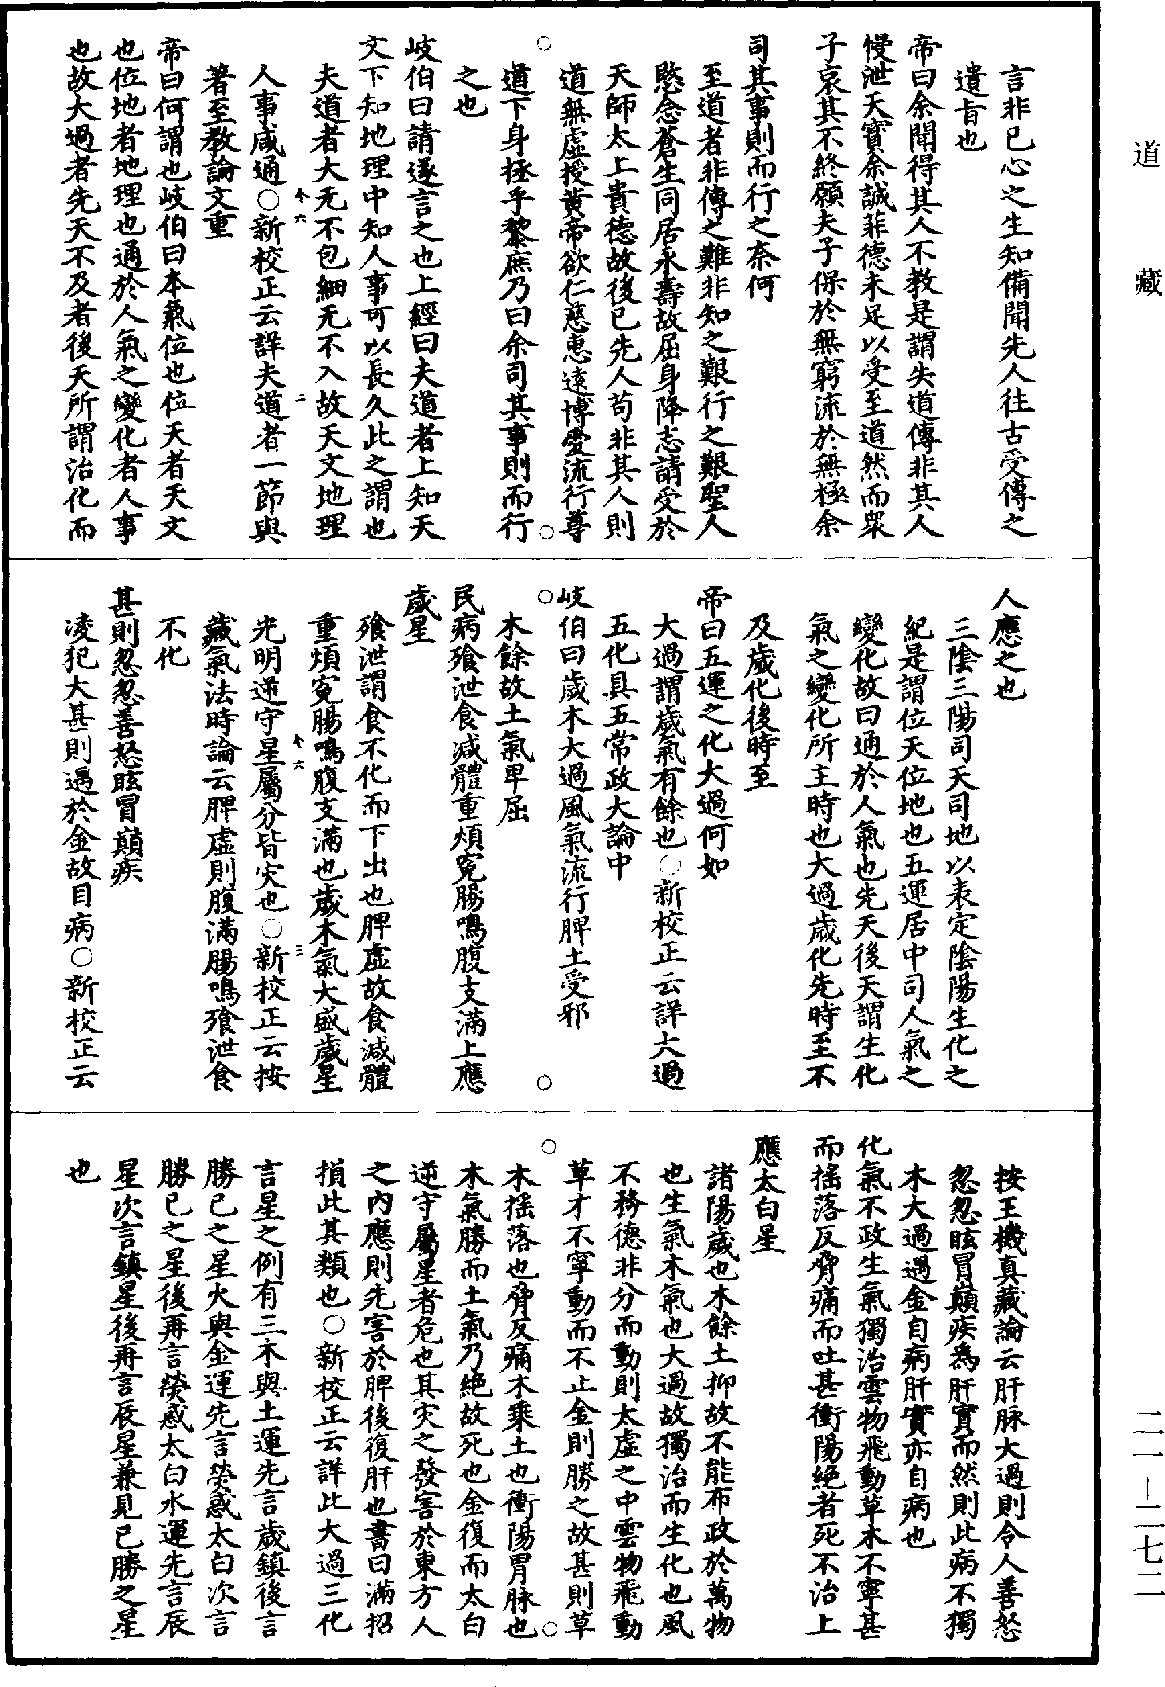 道藏
言非己心之生知備聞先人往古受傳之
遺旨也
帝曰余聞得其人不教是謂失道傳非其人
慢泄天寳余誠菲德未足以受至道然而衆
子哀其不終願夫子保於無窮流於無極余
司其事則而行之奈何
至道者非傳之難非知之艱行之艱聖人
愍念蒼生同居永壽故屈身降志請受於
天師太上貴德故後己先人苟非其人則
道無虛授黄帝欲仁慈惠遠博愛流行尊
道下身拯乎黎庶乃曰余司其事則而行
之也
岐伯曰請遂言之也上經曰夫道者上知天
文下知地理中知人事可以長久此之謂也
夫道者大无不包細无不入故天文地理
人事咸通○新校正云詳夫道者一節與
著至教論文重
帝曰何謂也岐伯曰本氣位也位天者天文
也位地者地理也通於人氣之變化者人事
也故大過者先天不及者後天所謂治化而
人應之也
三陰三陽司天司地以表定陰陽生化之
紀是謂位天位地也五運居中司人氣之
變化故曰通於人氣也先天後天謂生化
氣之變化所主時也大過歲化先時至不
及歲化後時至
帝曰五運之化大過何如
大過謂歲氣有餘也○新校正云詳大過
五化具五常政大論中
岐伯曰歲木大過風氣流行脾土受邪
木餘故土氣卑屈
民病飱泄食減體重煩寃腸鳴腹支滿上應
歲星
飱泄謂食不化而下出也脾虛故食減體
重煩寃腸鳴腹支滿也歲木氣大盛歲星
光明逆守星屬分皆灾也○新校正云按
藏氣法時論云脾虛則腹滿腸鳴飱泄食
不化
甚則忽忽善怒眩冒巔疾
凌犯大甚則遇於金故目病○新校正云
按玉機真藏論云肝脉大過則令人善怒
忽忽眩冒巔疾爲肝實而然則此病不獨
木大過遇金自病肝實亦自病也
化氣不政生氣獨治雲物飛動草木不寧甚
而摇落反脅痛而吐甚衝陽絶者死不治上
應太白星
諸陽歲也木餘土抑故不能布政於萬物
也生氣木氣也大過故獨治而生化也風
不務德非分而動則太虛之中雲物飛動
草木不寧動而不止金則勝之故甚則草
木摇落也脅反痛木乘土也衝陽胃脉也
木氣勝而土氣乃絶故死也金復而太白
逆守屬星者危也其灾之發害於東方人
之内應則先害於脾後復肝也書曰滿招
損此其類也○新校正云詳此大過三化
言星之例有三木與土運先言歲鎮後言
勝己之星火與金運先言熒惑太白次言
勝己之星後再言熒惑太白水運先言辰
星次言鎮星後再言辰星兼見己勝之星
也
二一—二七二